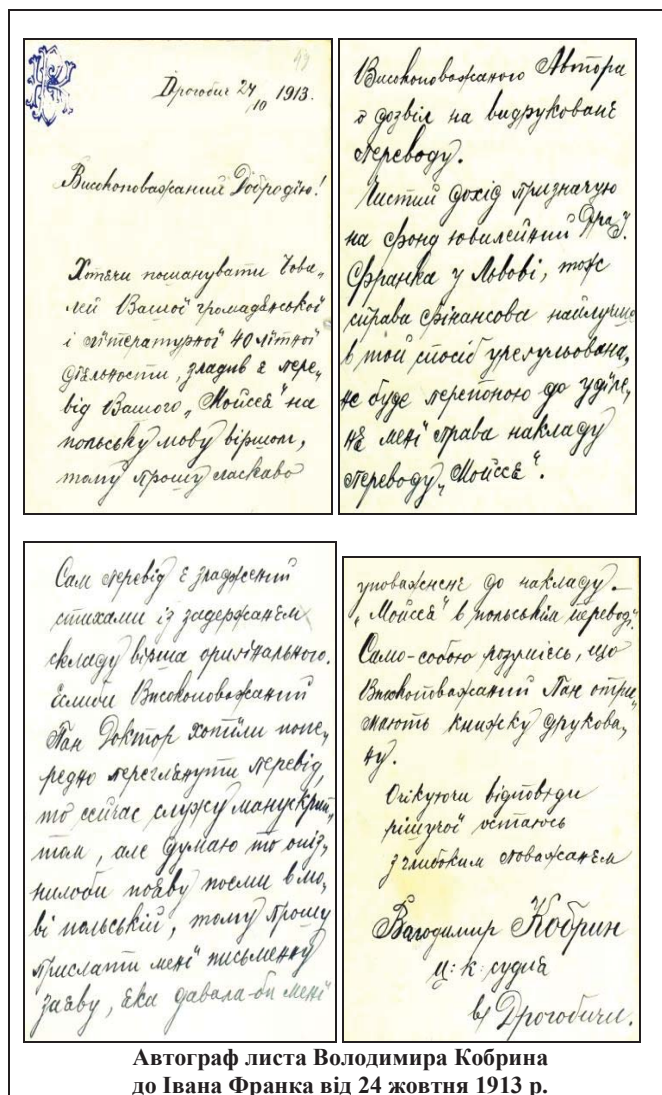 49
Дрогобич 24/10 1913.
Високоповажаний Добродїю!
Хотячи пошанувати Юви„
лей Вашої громадянської
і лїтературної 40 лїтної
дїяльности, зладив я пере„
від Вашого „Мойсея“ на
польську мову віршом,
тому прошу ласкаво
Високоповажаного Автора
о дозвіл на видрукованє
переводу.
Чистий дохід призначую
на фонд ювилейний Дра Ів.
Франка у Львові, тож
справа фінансова найлучше
в той спосіб урегульована,
не буде перепоною до удїле„
нє менї права накладу
переводу „Мойсея“.
Сам перевід є зладжений
стихами із задержанєм
складу вірша оригінального.
Еслиби Високоповажаний
Пан Доктор хотїли попе„
редно переглянути перевід,
то сейчас служу манускрип„
том, але думаю то опіз„
нилоби появу поеми в мо„
ві польській, тому прошу
прислати менї письменну
заяву, яка давала-би менї
уповажненє до накладу –
„Мойсея“ в польськім переводї.
Само-собою розумієсь, що
Високоповажаний Пан отри„
мають книжку друкова„
ну.
Очікуючи відповіди
рішучої остаюсь
з глибоким поважанєм
Володимир Кобрин
ц: к: судия
в Дрогобичи.
Автограф листа Володимира Кобрина
до Івана Франка від 24 жовтня 1913 р.